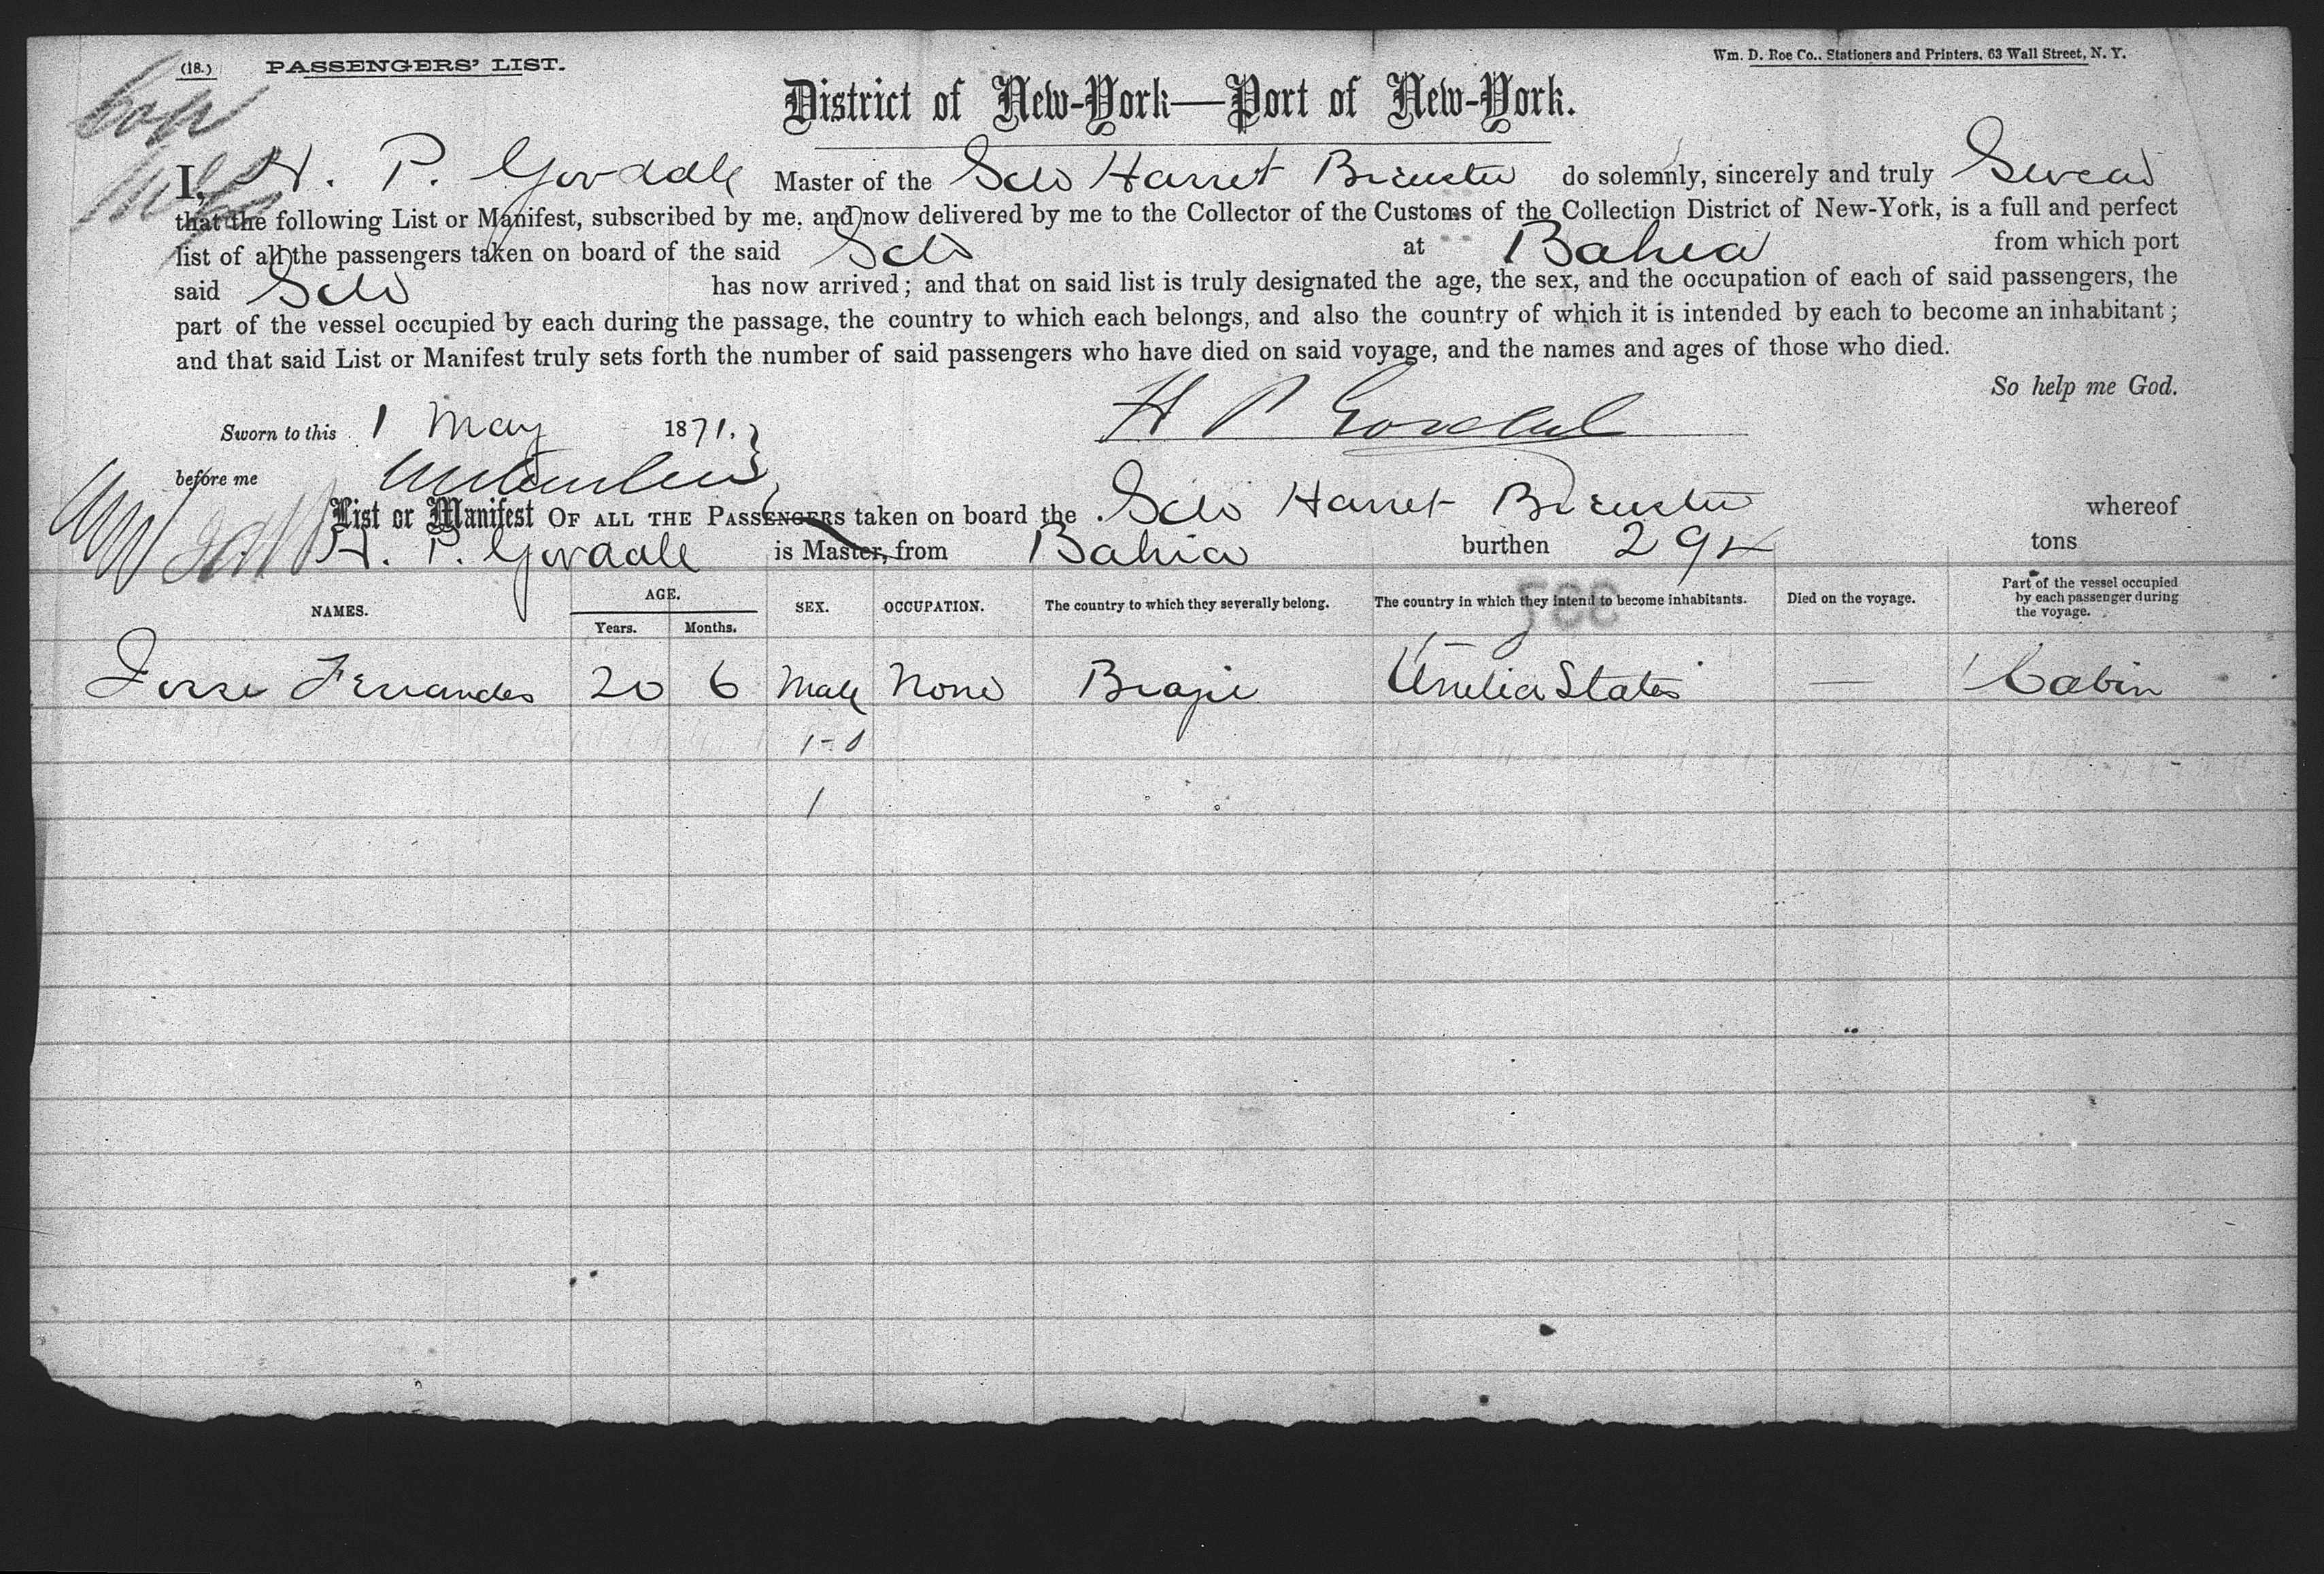 (18.) PASSENGERS' LIST.
Wm. D. Roe Co., Stationers and Printers, 63 Wall Street, N. Y.
District of New-York—Port of New-York.
I, H. P. Master of the Harriet Brewster do solemnly, sincerely and truly Swear
that the following List or Manifest, subscribed by me, and now delivered by me to the Collector of the Customs of the Collection District of New-York, is a full and perfect
list of all the passengers taken on board of the said at Bahia from which port
said has now arrived; and that on said list is truly designated the age, the sex, and the occupation of each of said passengers, the
part of the vessel occupied by each during the passage, the country to which each belongs, and also the country of which it is intended by each to become an inhabitant;
and that said List or Manifest truly sets forth the number of said passengers who have died on said voyage, and the names and ages of those who died.
So help me God.
Sworn to this 1 May 1871.
H P
before me
List or Manifest OF ALL THE PASSENGERS taken on board the Harriet Brewster whereof
H. P. is Master, from Bahia burthen 29 tons
NAMES. AGE. SEX. OCCUPATION. The country to which they severally belong. The country in which they intend to become inhabitants. Died on the voyage. Part of the vessel occupied by each passenger during the voyage.
Years. Months.
Fernandes 20 6 Male None Brazil United States — Cabin
1-0
1